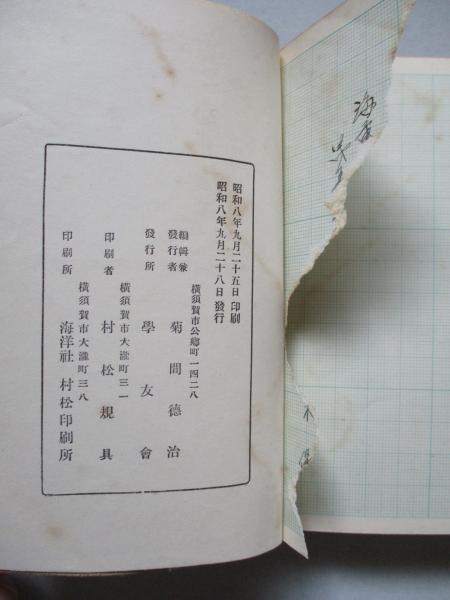 昭和八年九月二十五日印刷
昭和八年九月二十八日發行
橫須賀市公鄕町一四二八
編輯兼發行者 菊間德治
發行所 學友會
橫須賀市大瀧町三一
印刷者 村松規具
橫須賀市大瀧町三八
印刷所 海洋社 村松印刷所
海軍